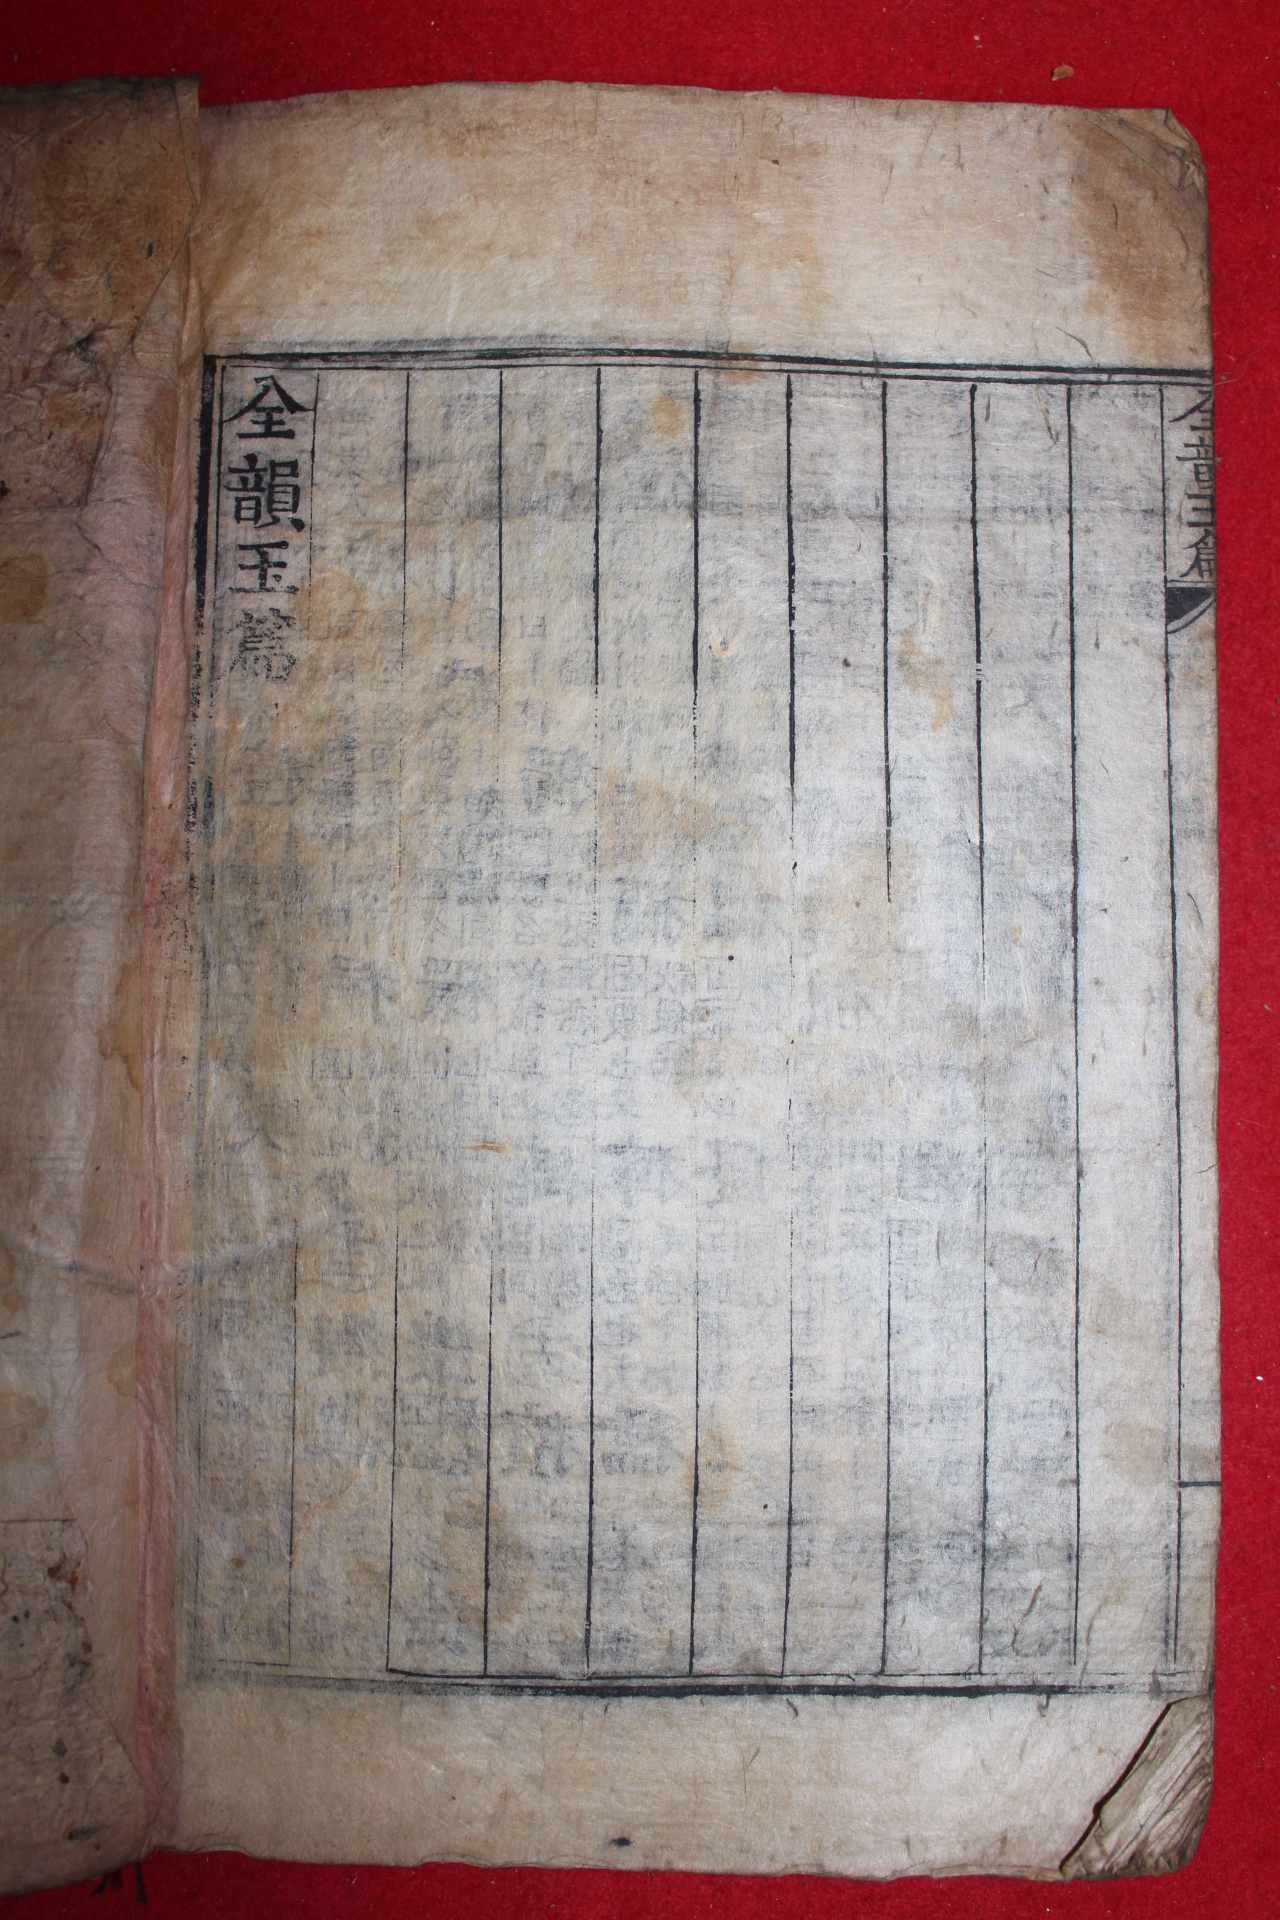 全韻玉篇
全韻玉篇